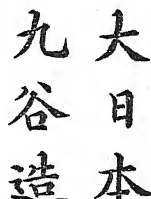 大日本
九谷造